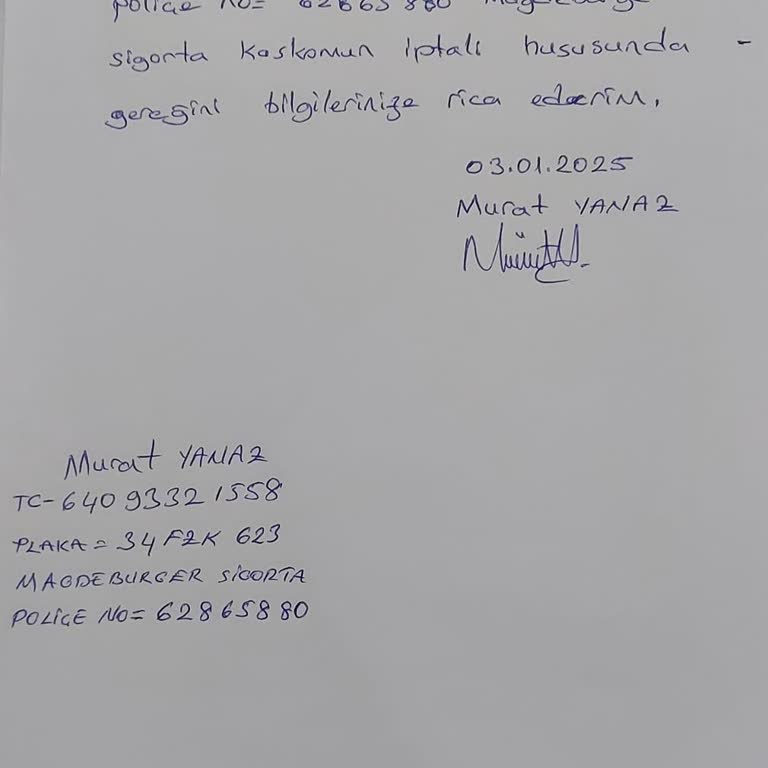 poliçe no= 62865880 Magdeburger
sigorta kaskomun iptali hususunda -
gereğini bilgilerinize rica ederim,
03.01.2025
Murat YANAZ
Murat YANAZ
TC-64093321558
PLAKA = 34 FZK 623
MAGDEBURGER SİGORTA
POLİÇE NO= 62865880